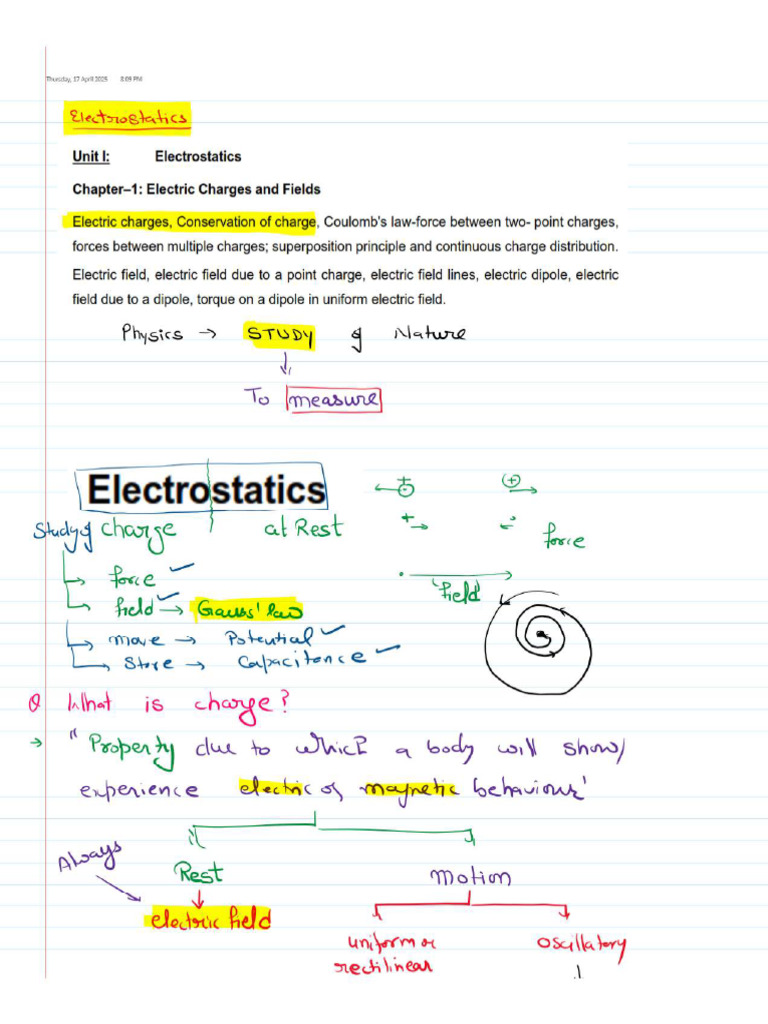 Thursday, 17 April 2025 8:09 PM
Electrostatics
Unit I: Electrostatics
Chapter–1: Electric Charges and Fields
Electric charges, Conservation of charge, Coulomb's law-force between two- point charges,
forces between multiple charges; superposition principle and continuous charge distribution.
Electric field, electric field due to a point charge, electric field lines, electric dipole, electric
field due to a dipole, torque on a dipole in uniform electric field.
Physics → STUDY of Nature
To measure
Electrostatics
Study of charge at Rest
force
force
field → Gauss' law
field
move → Potential
Store → Capacitence
Q What is charge?
→ "Property due to which a body will show/
experience electric or magnetic behaviour'
Always
Rest Motion
electric field
uniform or oscillatory
rectilinear